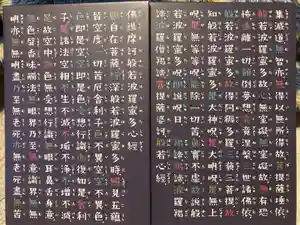 佛說摩訶般若波羅蜜多心經
觀自在菩薩行深般若波羅蜜多時照見五蘊
皆空度一切苦厄舍利子色不異空空不異色
色即是空空即是色受想行識亦復如是舍利
子是諸法空相不生不滅不垢不淨不增不減
是故空中無色無受想行識無眼耳鼻舌身意
無色聲香味觸法無眼界乃至無意識界無無
明亦無無明盡乃至無老死亦無老死盡無苦
集滅道無智亦無得以無所得故菩提薩埵依
般若波羅蜜多故心無罣礙無罣礙故無有恐
怖遠離一切顛倒夢想究竟涅槃三世諸佛依
般若波羅蜜多故得阿耨多羅三藐三菩提故
知般若波羅蜜多是大神咒是大明咒是無上
咒是無等等咒能除一切苦真實不虛故說般
若波羅蜜多咒即說咒曰揭諦揭諦波羅揭諦
波羅僧揭諦菩提薩婆訶
般若心經